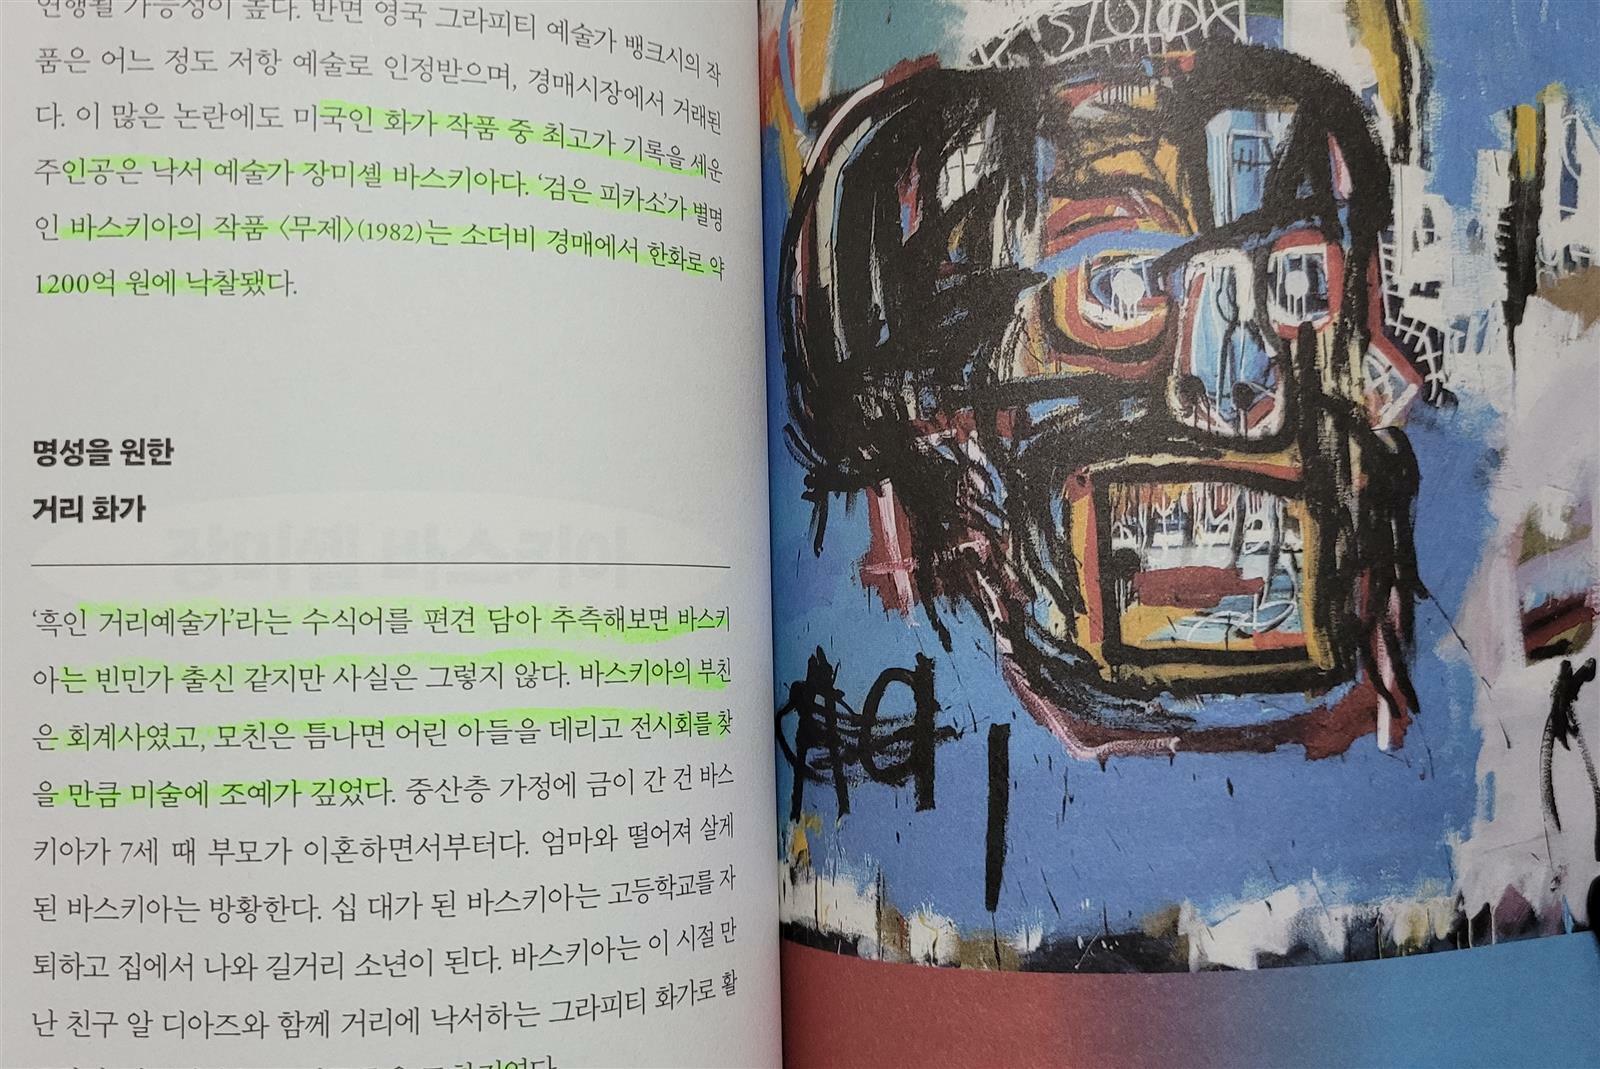 연행될 가능성이 높다. 반면 영국 그라피티 예술가 뱅크시의 작
품은 어느 정도 저항 예술로 인정받으며, 경매시장에서 거래된
다. 이 많은 논란에도 미국인 화가 작품 중 최고가 기록을 세운
주인공은 낙서 예술가 장미셸 바스키아다. ‘검은 피카소’가 별명
인 바스키아의 작품 〈무제〉(1982)는 소더비 경매에서 한화로 약
1200억 원에 낙찰됐다.
명성을 원한
거리 화가
‘흑인 거리예술가’라는 수식어를 편견 담아 추측해보면 바스키
아는 빈민가 출신 같지만 사실은 그렇지 않다. 바스키아의 부친
은 회계사였고, 모친은 틈나면 어린 아들을 데리고 전시회를 찾
을 만큼 미술에 조예가 깊었다. 중산층 가정에 금이 간 건 바스
키아가 7세 때 부모가 이혼하면서부터다. 엄마와 떨어져 살게
된 바스키아는 방황한다. 십 대가 된 바스키아는 고등학교를 자
퇴하고 집에서 나와 길거리 소년이 된다. 바스키아는 이 시절 만
난 친구 알 디아즈와 함께 거리에 낙서하는 그라피티 화가로 활